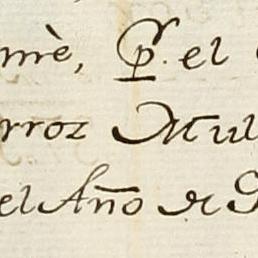 mè, P. el
rroz Mul
el Año de